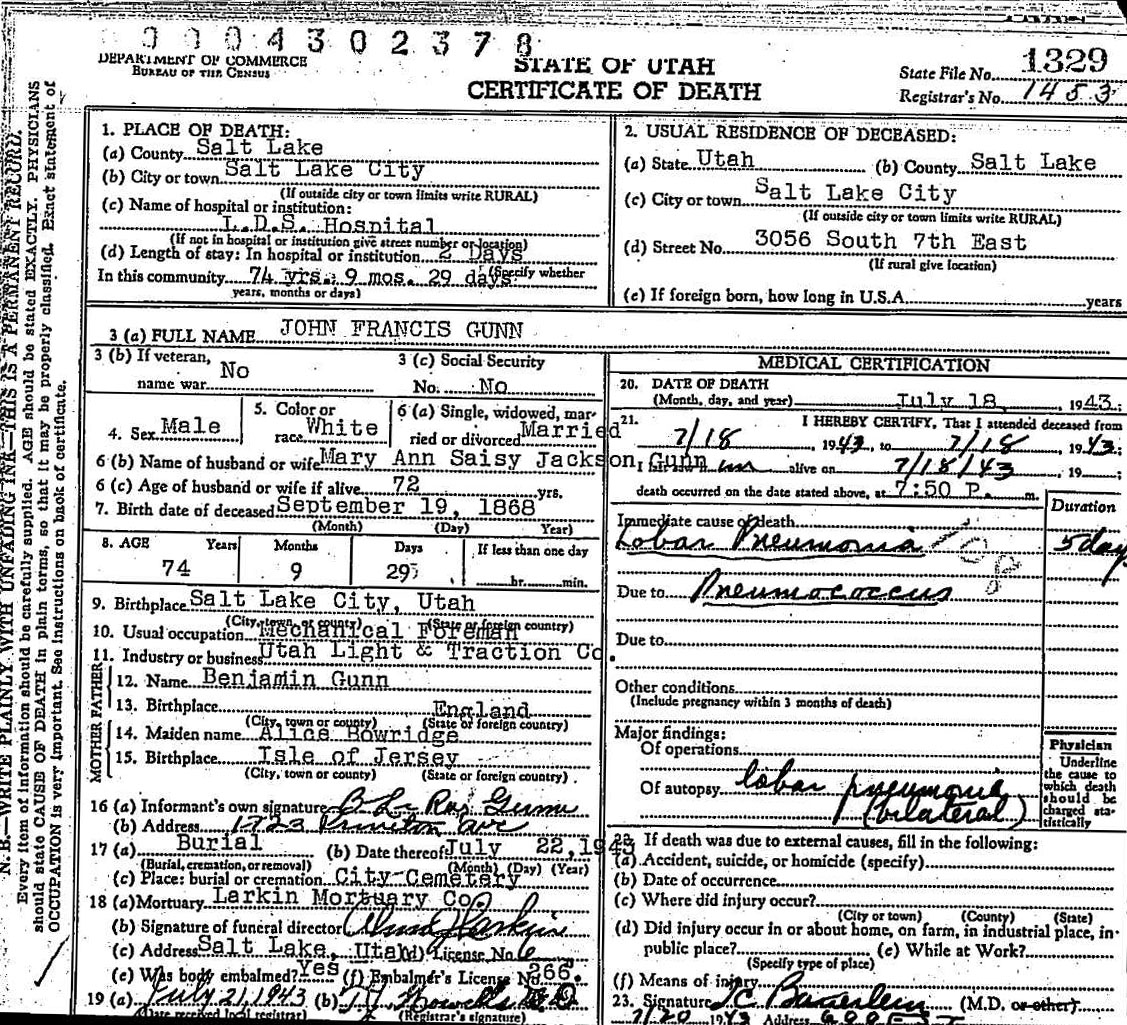 0 0 0 4 3 0 2 3 7 8
DEPARTMENT OF COMMERCE
BUREAU OF THE CENSUS
STATE OF UTAH
CERTIFICATE OF DEATH
State File No. 1329
Registrar's No. 1453
N. B.—WRITE PLAINLY WITH UNFADING INK—THIS IS A PERMANENT RECORD.
Every item of information should be carefully supplied. AGE should be stated EXACTLY. PHYSICIANS
should state CAUSE OF DEATH in plain terms, so that it may be properly classified. Exact statement of
OCCUPATION is very important. See instructions on back of certificate.
1. PLACE OF DEATH:
(a) County Salt Lake
(b) City or town Salt Lake City
(If outside city or town limits write RURAL)
(c) Name of hospital or institution:
L.D.S. Hospital
(If not in hospital or institution give street number or location)
(d) Length of stay: In hospital or institution 2 Days
(Specify whether
In this community 74 yrs. 9 mos. 29 days
years, months or days)
2. USUAL RESIDENCE OF DECEASED:
(a) State Utah (b) County Salt Lake
(c) City or town Salt Lake City
(If outside city or town limits write RURAL)
(d) Street No. 3056 South 7th East
(If rural give location)
(e) If foreign born, how long in U.S.A. years
3 (a) FULL NAME JOHN FRANCIS GUNN
3 (b) If veteran, name war No
3 (c) Social Security No. No
4. Sex Male
5. Color or race White
6 (a) Single, widowed, married or divorced Married
6 (b) Name of husband or wife Mary Ann Saisy Jackson Gunn
6 (c) Age of husband or wife if alive 72 yrs.
7. Birth date of deceased September 19, 1868
(Month) (Day) Year)
8. AGE Years Months Days If less than one day
74 9 29 hr. min.
9. Birthplace Salt Lake City, Utah
(City, town, or county) (State or foreign country)
10. Usual occupation Mechanical Foreman
11. Industry or business Utah Light & Traction Co.
FATHER
12. Name Benjamin Gunn
13. Birthplace England
(City, town or county) (State or foreign country)
MOTHER
14. Maiden name Alice Bowridge
15. Birthplace Isle of Jersey
(City, town or county) (State or foreign country)
16 (a) Informant's own signature B. Le Roy Gunn
(b) Address 1723 Princeton Ave
17 (a) Burial (b) Date thereof July 22, 1943
(Burial, cremation, or removal) (Month) (Day) (Year)
(c) Place: burial or cremation City Cemetery
18 (a) Mortuary Larkin Mortuary Co.
(b) Signature of funeral director Larkin
(c) Address Salt Lake, Utah (d) License No. 6
(e) Was body embalmed? Yes (f) Embalmer's License No. 266.
19 (a) July 21, 1943 (b)
(Date received local registrar) (Registrar's signature)
MEDICAL CERTIFICATION
20. DATE OF DEATH
(Month, day, and year) July 18, 1943:
21. I HEREBY CERTIFY, That I attended deceased from
7/18 1943, to 7/18 1943:
I last saw him alive on 7/18/43 19 ;
death occurred on the date stated above, at 7:50 P. m.
Duration
Immediate cause of death
Lobar Pneumonia 108 5 day
Due to Pneumococcus
Due to
Other conditions
(Include pregnancy within 3 months of death)
Major findings:
Of operations
Of autopsy lobar pneumonia
(bilateral)
Physician
Underline
the cause to
which death
should be
charged sta-
tistically
22. If death was due to external causes, fill in the following:
(a) Accident, suicide, or homicide (specify)
(b) Date of occurrence
(c) Where did injury occur?
(City or town) (County) (State)
(d) Did injury occur in or about home, on farm, in industrial place, in
public place? (e) While at Work?
(Specify type of place)
(f) Means of injury
23. Signature J.C. Bauerlein (M.D. or other)
7/20 1943 Address